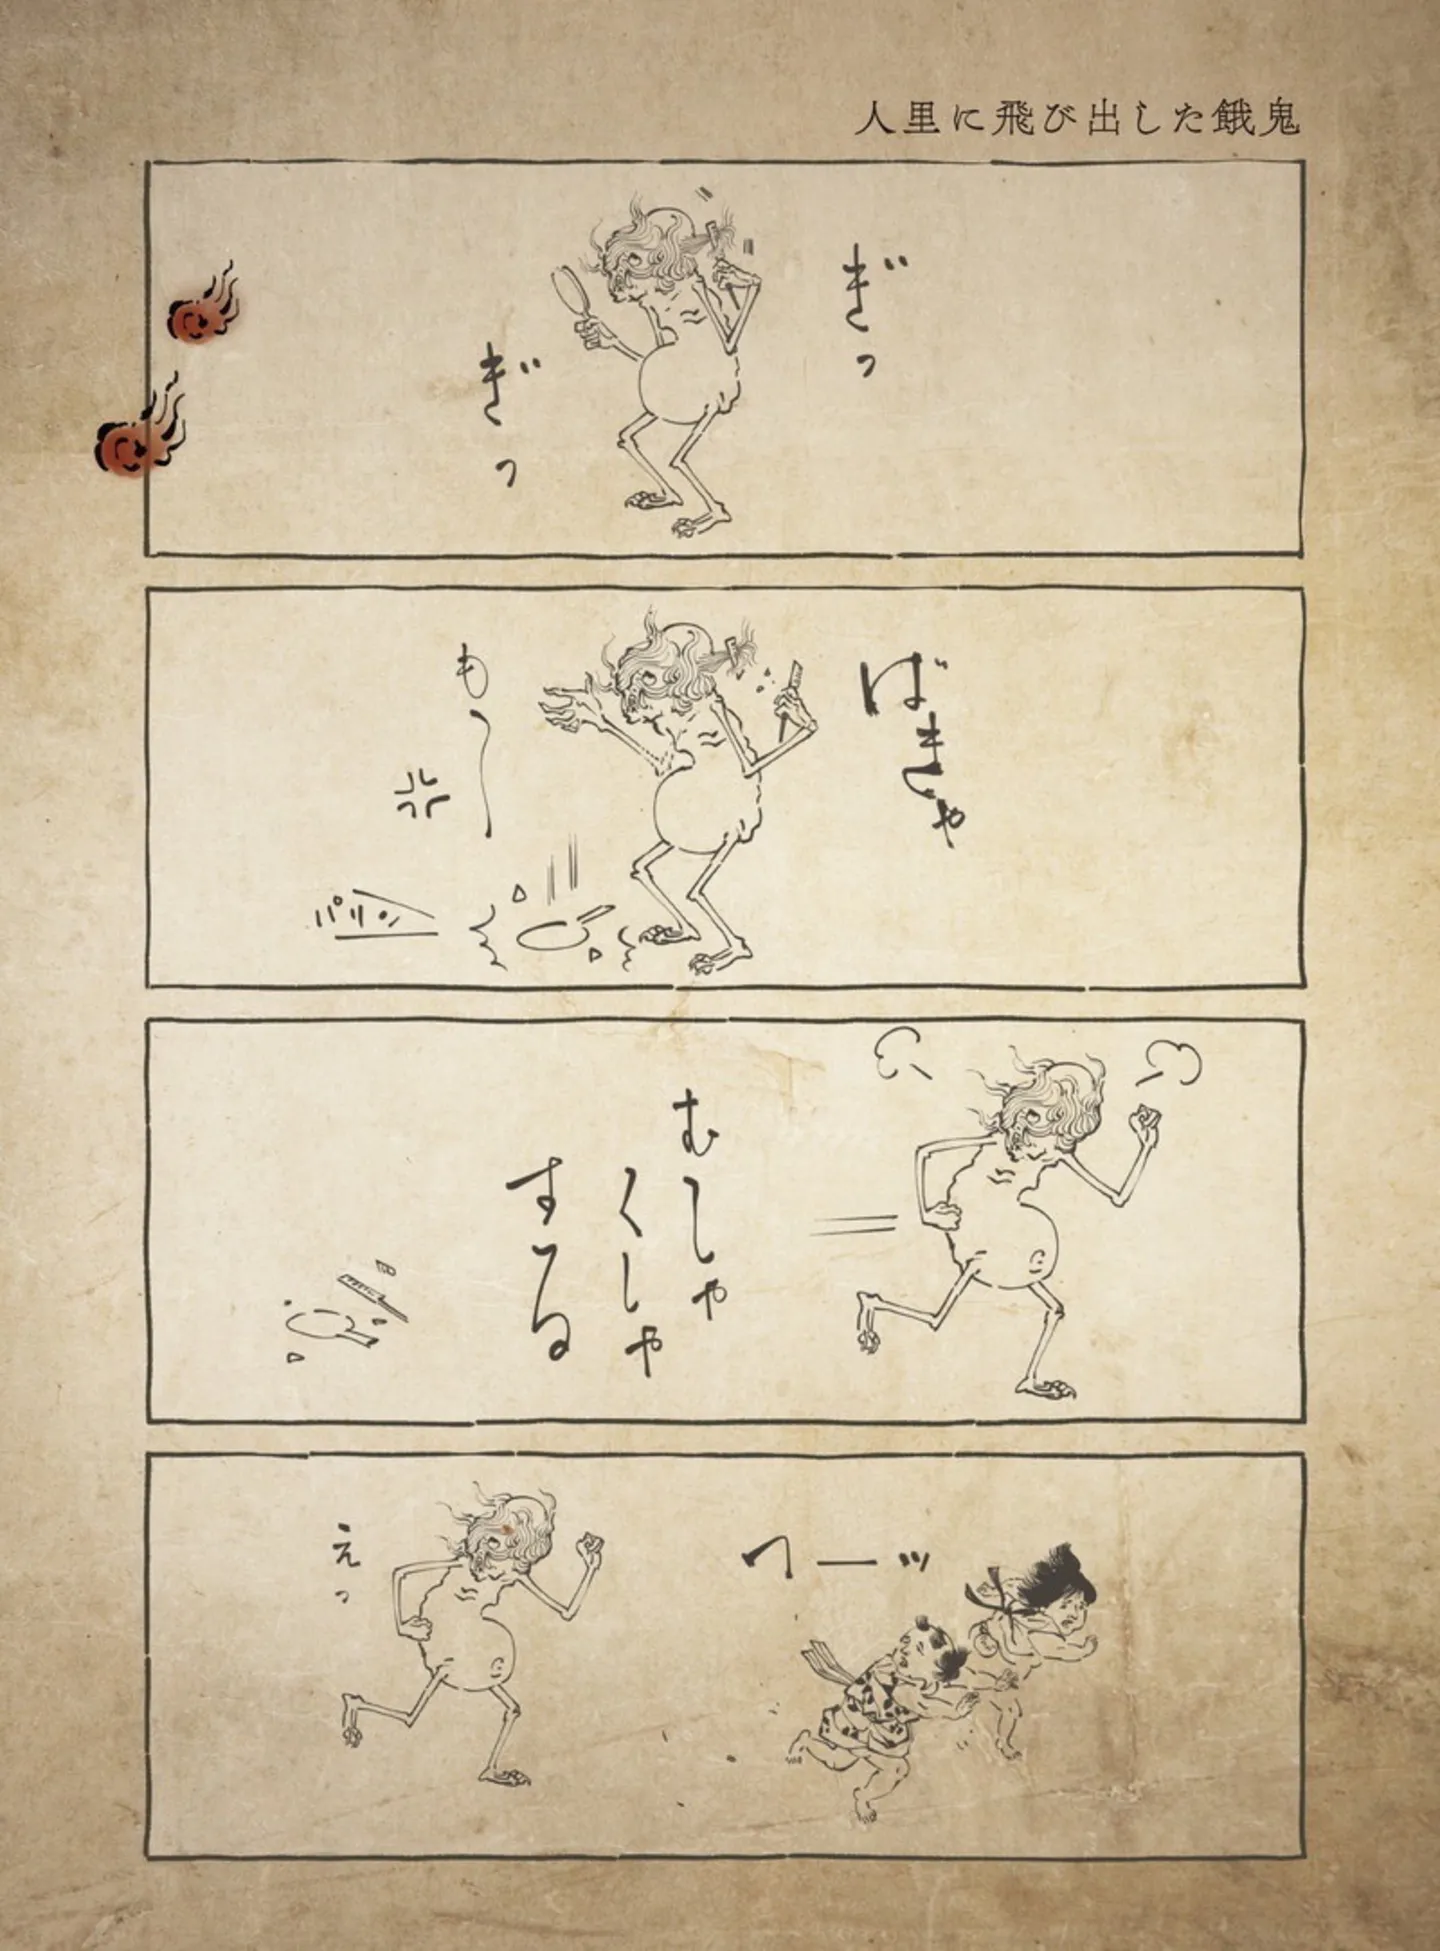 人里に飛び出した餓鬼
ぎっ
ぎっ
ばきゃ
も〜
パリン
むしゃ
くしゃ
する
へーッ
えっ